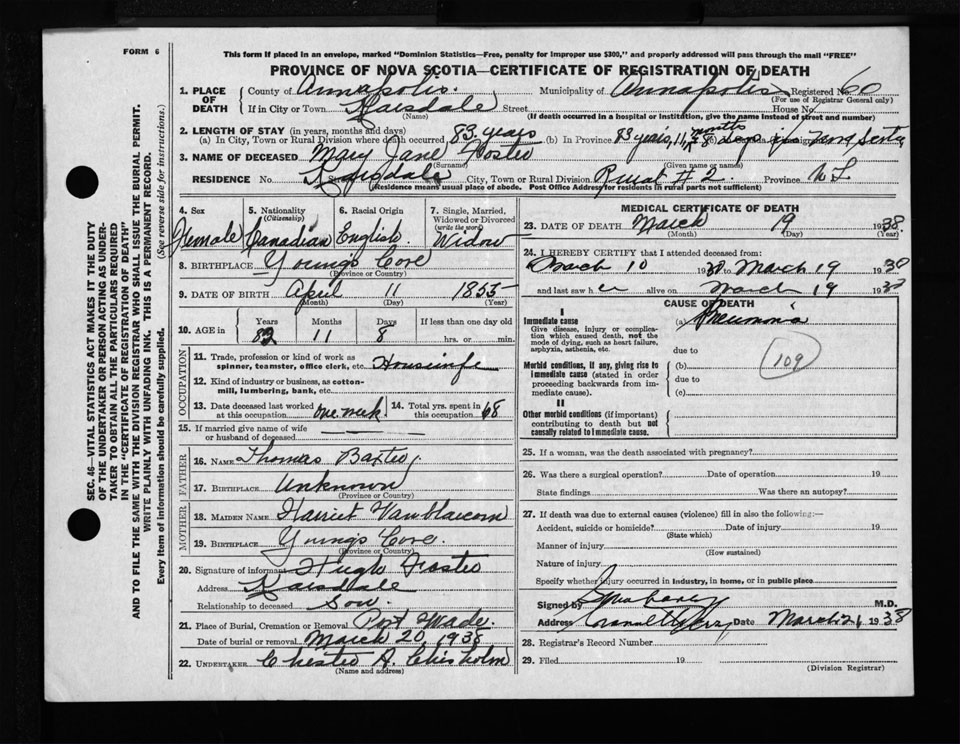 FORM 6
This form if placed in an envelope, marked "Dominion Statistics—Free, penalty for improper use $300," and properly addressed will pass through the mail "FREE"
PROVINCE OF NOVA SCOTIA—CERTIFICATE OF REGISTRATION OF DEATH
SEC. 46—VITAL STATISTICS ACT MAKES IT THE DUTY
OF THE UNDERTAKER OR PERSON ACTING AS UNDER-
TAKER TO OBTAIN ALL THE PARTICULARS REQUIRED
IN THE "CERTIFICATE OF REGISTRATION OF DEATH"
AND TO FILE THE SAME WITH THE DIVISION REGISTRAR WHO SHALL ISSUE THE BURIAL PERMIT.
WRITE PLAINLY WITH UNFADING INK. THIS IS A PERMANENT RECORD.
Every item of information should be carefully supplied. (See reverse side for instructions.)
1. PLACE OF DEATH
County of Annapolis. Municipality of Annapolis Registered No. 60
(For use of Registrar General only)
If in City or Town Karsdale Street House No.
(Name) (If death occurred in a hospital or institution, give the name instead of street and number)
2. LENGTH OF STAY (in years, months and days)
(a) In City, Town or Rural Division where death occurred 83 years (b) In Province 83 years, 11 months 8 days
3. NAME OF DECEASED Mary Jane Foster
(Surname) (Given name or names)
RESIDENCE No. Karsdale City, Town or Rural Division Rural # 2. Province N S
(Residence means usual place of abode. Post Office Address for residents in rural parts not sufficient)
4. Sex
Female
5. Nationality
(Citizenship)
Canadian
6. Racial Origin
English
7. Single, Married,
Widowed or Divorced
(write the word)
Widow
8. BIRTHPLACE Young's Cove
(Province or Country)
9. DATE OF BIRTH April 11 1855
(Month) (Day) (Year)
10. AGE in Years Months Days If less than one day old
82 11 8 hrs. or min.
OCCUPATION
11. Trade, profession or kind of work as
spinner, teamster, office clerk, etc. Housewife
12. Kind of industry or business, as cotton-
mill, lumbering, bank, etc.
13. Date deceased last worked
at this occupation one week
14. Total yrs. spent in
this occupation 68
15. If married give name of wife
or husband of deceased
FATHER
16. NAME Thomas Baxter
17. BIRTHPLACE Unknown
(Province or Country)
MOTHER
18. MAIDEN NAME Harriet VanBlarcom
19. BIRTHPLACE Young's Cove.
(Province or Country)
20. Signature of informant Hugh Foster
Address Karsdale
Relationship to deceased Son.
21. Place of Burial, Cremation or Removal Port Wade.
Date of burial or removal March 20, 1938
22. UNDERTAKER Chester A. Chisholm
(Name and address)
MEDICAL CERTIFICATE OF DEATH
23. DATE OF DEATH March 19 1938
(Month) (Day) (Year)
24. I HEREBY CERTIFY that I attended deceased from:
March 10 1938 to March 19 1938
and last saw her alive on March 19 1938
CAUSE OF DEATH
I
Immediate cause
Give disease, injury or complica-
tion which caused death, not the
mode of dying, such as heart failure,
asphyxia, asthenia, etc.
(a) Pneumonia
due to
109
Morbid conditions, if any, giving rise to
immediate cause (stated in order
proceeding backwards from im-
mediate cause).
(b)
due to
(c)
II
Other morbid conditions (if important)
contributing to death but not
causally related to immediate cause.
25. If a woman, was the death associated with pregnancy?
26. Was there a surgical operation? Date of operation 19
State findings Was there an autopsy?
27. If death was due to external causes (violence) fill in also the following:—
Accident, suicide or homicide? Date of injury 19
(State which)
Manner of injury
(How sustained)
Nature of injury
Specify whether injury occurred in industry, in home, or in public place
Signed by M.D.
Address Date March 21, 1938
28. Registrar's Record Number
29. Filed 19
(Division Registrar)